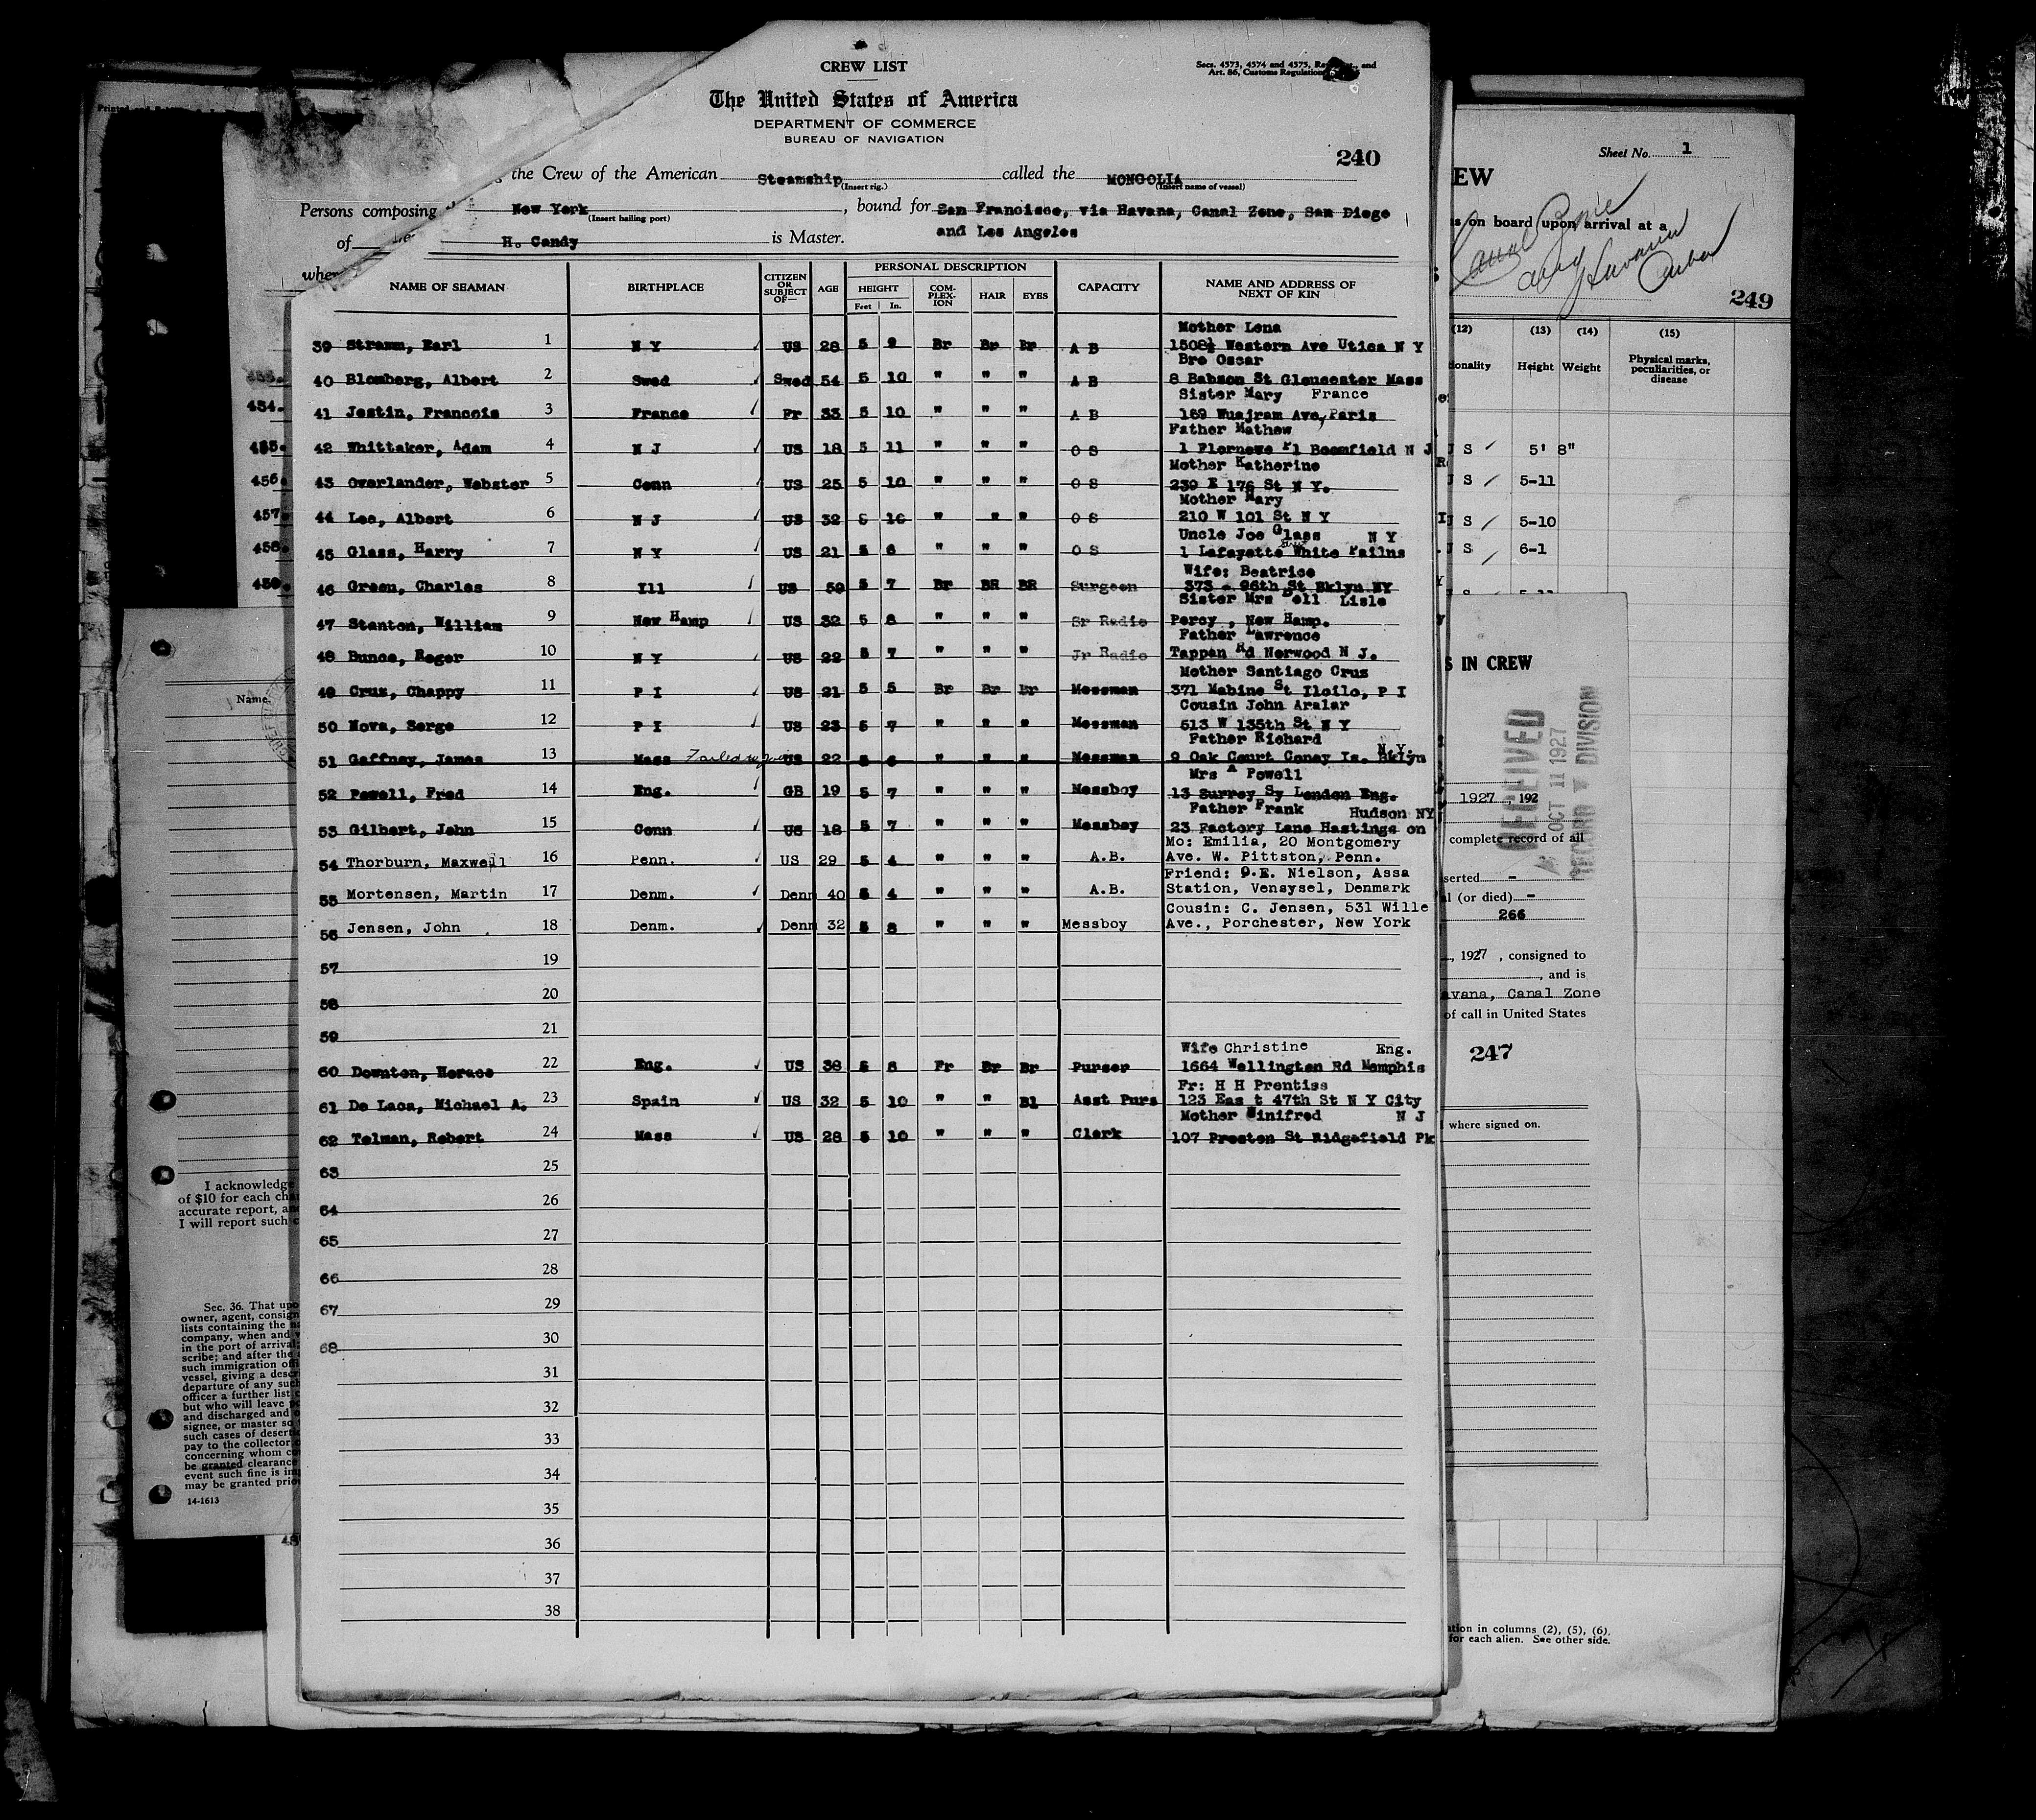 CREW LIST
Secs. 4573, 4574 and 4575, and
Art. 86, Customs Regulation
The United States of America
DEPARTMENT OF COMMERCE
BUREAU OF NAVIGATION
240
the Crew of the American Steamship called the MONGOLIA
(Insert rig.) (Insert name of vessel)
Persons composing New York, bound for San Francisco, via Havana, Canal Zone, San Diego
(Insert hailing port)
and Los Angeles
of H. Candy is Master.
NAME OF SEAMAN BIRTHPLACE CITIZEN OR SUBJECT OF— AGE PERSONAL DESCRIPTION HEIGHT Feet In. COMPLEXION HAIR EYES CAPACITY NAME AND ADDRESS OF NEXT OF KIN
Mother Lena
39 Stramm, Earl 1 N Y US 28 5 9 Br Br Br A B 1508½ Western Ave Utica N Y
Bro Oscar
40 Blomberg, Albert 2 Swed Swed 54 5 10 " " " A B 8 Babson St Gloucester Mass
Sister Mary France
41 Jestin, Francois 3 France Fr 33 5 10 " " " A B 189 Wuajram Ave, Paris
Father Mathew
42 Whittaker, Adam 4 N J US 18 5 11 " " " O S 1 Flornewe Pl Boomfield N J
Mother Katherine
43 Overlander, Webster 5 Conn US 25 5 10 " " " O S 239 E 176 St N Y.
Mother Mary
44 Lee, Albert 6 N J US 32 5 10 " " " O S 210 W 101 St N Y
Uncle Joe Glass N Y
45 Glass, Harry 7 N Y US 21 5 6 " " " O S 1 Lafayette White Pailns
Wife: Beatrice
46 Green, Charles 8 Ill US 59 5 7 Br BR BR Surgeon 373 - 96th St Bklyn NY
Sister Mrs Lisle
47 Stanton, William 9 New Hamp US 32 5 8 " " " Sr Radio Percy, New Hamp.
Father Lawrence
48 Bunce, Roger 10 N Y US 22 5 7 " " " Jr Radio Tappan Rd Norwood N J.
Mother Santiago Cruz
49 Cruz, Chappy 11 P I US 21 5 5 Br Br Br Messman 371 Mabine St Iloilo, P I
Cousin John Aralar
50 Nova, Serge 12 P I US 23 5 7 " " " Messman 513 W 135th St N Y
Father Richard
51 Gaffney, James 13 Mass Failed to join US 22 5 6 " " " Messman 9 Oak Court Coney Is. Bklyn N.Y.
Mrs A Powell
52 Powell, Fred 14 Eng. GB 19 5 7 " " " Messboy 13 Surrey Sy London Eng.
Father Frank Hudson NY
53 Gilbert, John 15 Conn US 18 5 7 " " " Messboy 23 Factory Lane Hastings on
Mo: Emilia, 20 Montgomery
54 Thorburn, Maxwell 16 Penn. US 29 5 4 " " " A.B. Ave. W. Pittston, Penn.
Friend: O.E. Nielson, Assa
55 Mortensen, Martin 17 Denm. Denm 40 5 4 " " " A.B. Station, Vensysel, Denmark
Cousin: C. Jensen, 531 Wille
56 Jensen, John 18 Denm. Denm 32 5 8 " " " Messboy Ave., Porchester, New York
57 19
58 20
59 21
Wife Christine Eng.
60 Downton, Horace 22 Eng. US 38 5 8 Fr Br Br Purser 1664 Wellington Rd Memphis
Fr: H H Prentiss
61 De Laca, Michael A. 23 Spain US 32 5 10 " " Bl Asst Purs 123 Eas t 47th St N Y City
Mother Winifred N J
62 Telman, Robert 24 Mass US 28 5 10 " " " Clerk 107 Preston St Ridgefield Pk
63 25
64 26
65 27
66 28
67 29
68 30
31
32
33
34
35
36
37
38
454.
455.
456.
457.
458.
459.
Name.
I acknowledge
of $10 for each
accurate report,
I will report such
Sec. 36. That
owner, agent,
lists containing the
company, when and
in the port of arrival;
scribe; and after the
such immigration
vessel, giving a
departure of any such
officer a further list
but who will leave
and discharged and
signee, or master so
such cases of
pay to the collector
concerning whom
be granted clearance
event such fine is
may be granted
14-1613
Sheet No. 1
EW
on board upon arrival at a
Canal Zone
and Havana
Cuba
249
(12) (13) (14) (15)
Height Weight Physical marks, peculiarities, or disease
S 5' 8"
S 5-11
S 5-10
S 6-1
S IN CREW
RECEIVED
OCT 11 1927
RECORD DIVISION
1927, 192
complete record of all
(or died) -
266
, 1927, consigned to
, and is
Canal Zone
of call in United States
247
where signed on.
in columns (2), (5), (6),
for each alien. See other side.